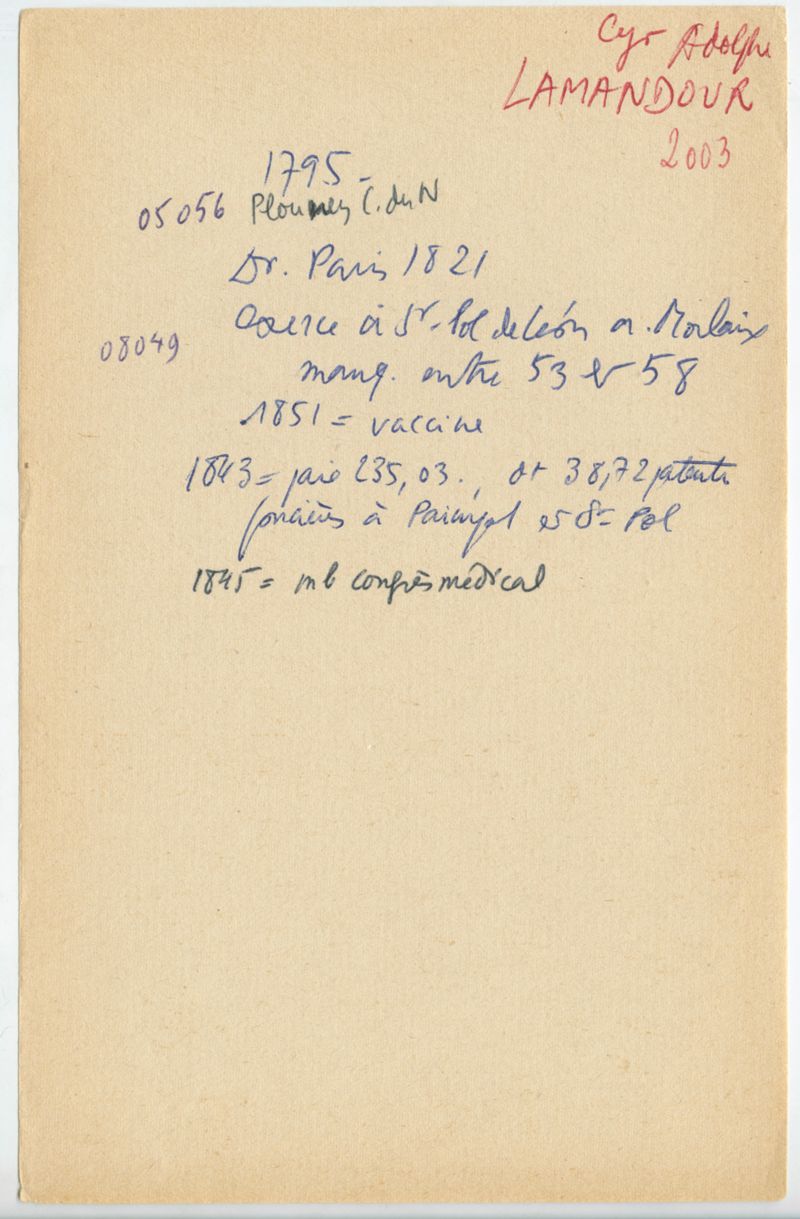 Cyr Adolphe
LAMANDOUR
2003
1795 -
05056 C. du N
Dr. Paris 1821
Exerce à St-Pol de Léon arr. Morlaix
08049
manq. entre 53 et 58
1851 = vaccine
1843 = paie 235,03., dt 38,72 patente
foncières à Paimpol et St-Pol
1845 = mb congrès médical